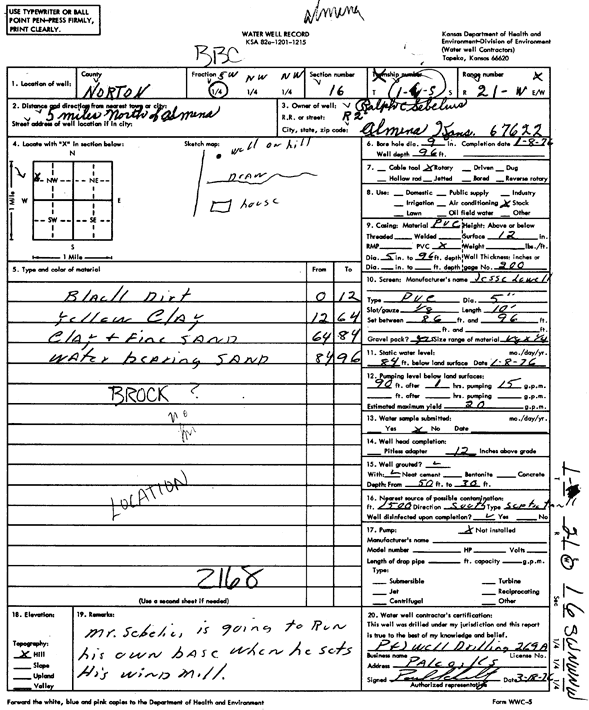 USE TYPEWRITER OR BALL
POINT PEN-PRESS FIRMLY,
PRINT CLEARLY.
almena
WATER WELL RECORD
KSA 82a-1201-1215
Kansas Department of Health and
Environment-Division of Environment
(Water well Contractors)
Topeka, Kansas 66620
BBC
1. Location of well: County NORTON Fraction SW NW NW 1/4 1/4 1/4 Section number 16 Township number T 1-S S Range number R 21-W E/W
2. Distance and direction from nearest town or city: 5 miles North of Almena
Street address of well location if in city:
3. Owner of well: Ralph C Sebelius
R.R. or street: R2
City, state, zip code: Almena Kans. 67622
4. Locate with "X" in section below:
N
X NW NE
W E
SW SE
S
1 Mile
1 Mile
Sketch map:
well on hill
DRAW
house
6. Bore hole dia. 9 in. Completion date 1-8-76
Well depth 96 ft.
7. Cable tool X Rotary Driven Dug
Hollow rod Jetted Bored Reverse rotary
8. Use: Domestic Public supply Industry
Irrigation Air conditioning X Stock
Lawn Oil field water Other
9. Casing: Material PVC Height: Above or below
Threaded Welded Surface 12 in.
RMP PVC X Weight lbs./ft.
Dia. 5 in. to 96 ft. depth Wall Thickness: inches or
Dia. in. to ft. depth gage No. 200
5. Type and color of material From To
Black Dirt 0 12
Yellow Clay 12 64
Clay + Fine SAND 64 84
Water bearing SAND 84 96
BROCK ?
LOCATION
2168
(Use a second sheet if needed)
10. Screen: Manufacturer's name
Type PVC Dia. 5"
Slot/gauze 1/8 Length 10'
Set between 86 ft. and 96 ft.
ft. and ft.
Gravel pack? Size range of material
11. Static water level: mo./day/yr.
84 ft. below land surface Date 1-8-76
12. Pumping level below land surfaces:
90 ft. after 1 hrs. pumping 15 g.p.m.
ft. after hrs. pumping g.p.m.
Estimated maximum yield 20 g.p.m.
13. Water sample submitted: mo./day/yr.
Yes X No Date
14. Well head completion:
Pitless adapter 12 Inches above grade
15. Well grouted?
With: Neat cement Bentonite Concrete
Depth: From 50 ft. to 30 ft.
16. Nearest source of possible contamination:
ft. 1500 Direction South Type
Well disinfected upon completion? Yes No
17. Pump: X Not installed
Manufacturer's name
Model number HP Volts
Length of drop pipe ft. capacity g.p.m.
Type:
Submersible Turbine
Jet Reciprocating
Centrifugal Other
18. Elevation:
Topography:
X Hill
Slope
Upland
Valley
19. Remarks:
Mr. Sebelius is going to Run
his own base when he sets
His wind mill.
20. Water well contractor's certification:
This well was drilled under my jurisdiction and this report
is true to the best of my knowledge and belief.
Well Drilling 269A
Business name License No.
Address
Signed Date 3-18-76
Authorized representative
T R Sec 1/4 1/4 1/4
Forward the white, blue and pink copies to the Department of Health and Environment Form WWC-5